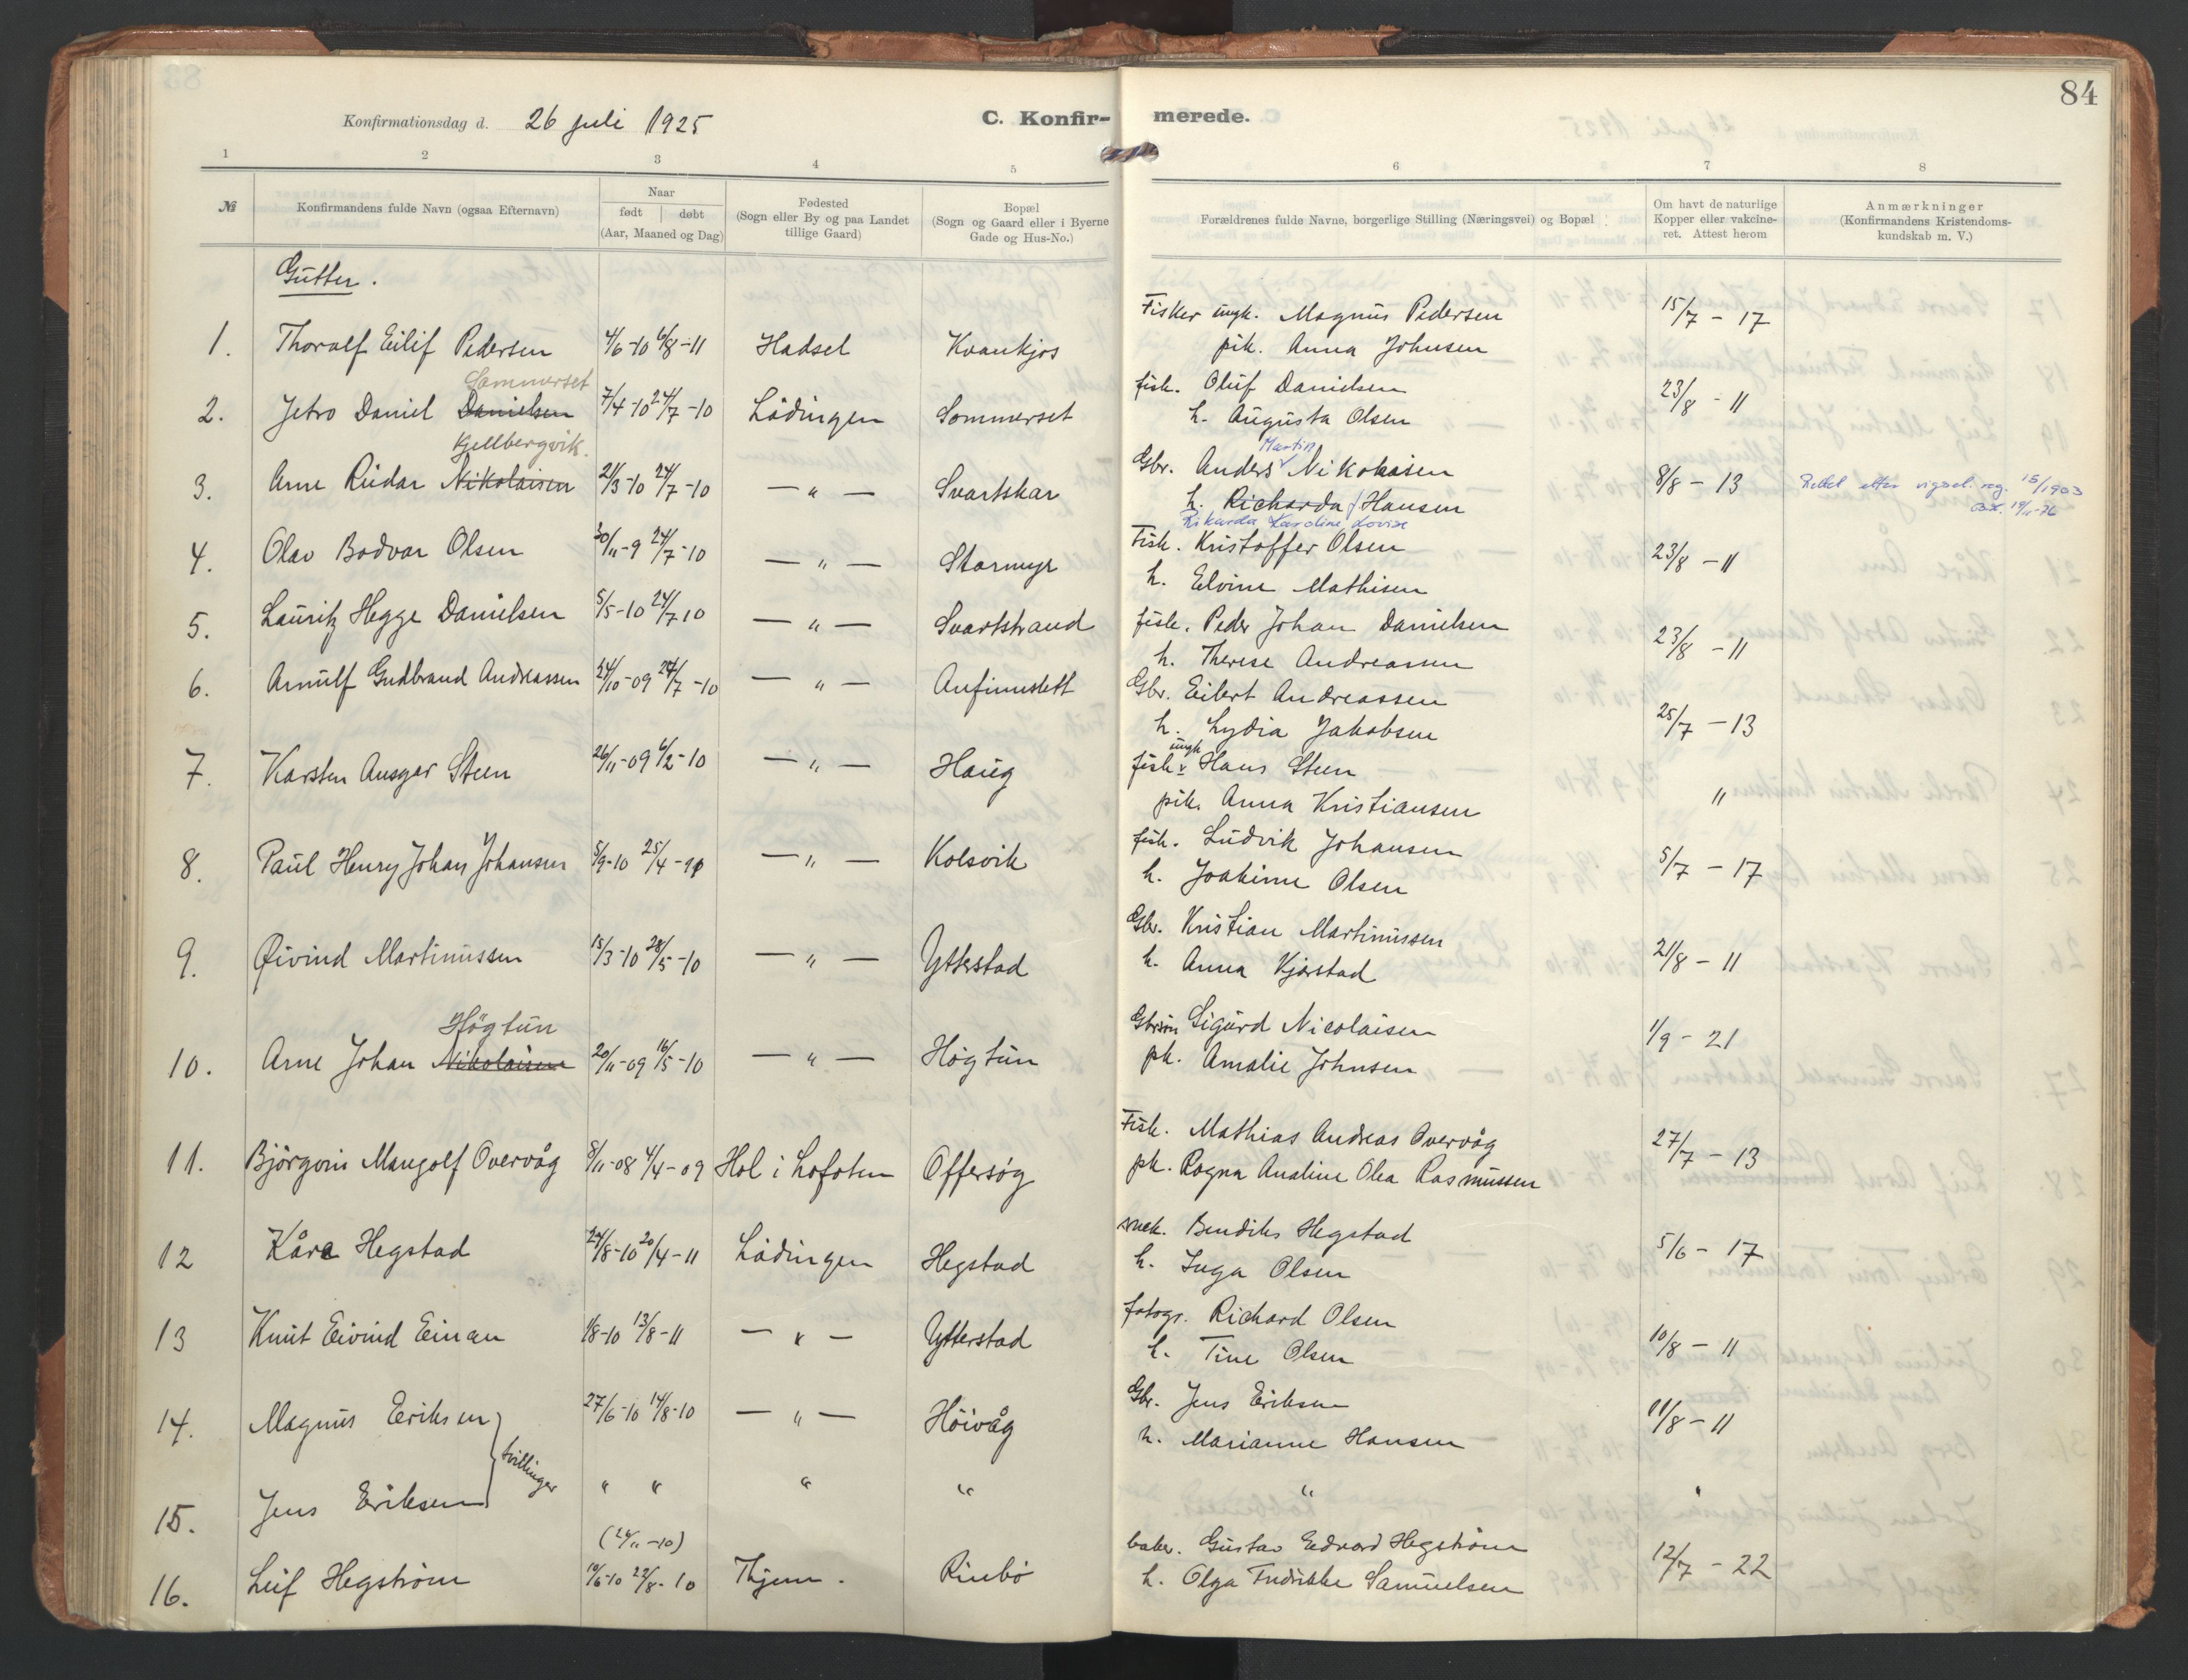 84
Konfirmationsdag d. 26 juli 1925
C. Konfir- merede.
1 2 3 4 5 6 7 8
№
Konfirmandens fulde Navn (ogsaa Efternavn)
Naar
født | døbt
(Aar, Maaned og Dag)
Fødested
(Sogn eller By og paa Landet
tillige Gaard)
Bopæl
(Sogn og Gaard eller i Byerne
Gade og Hus-No.)
Forældrenes fulde Navne, borgerlige Stilling (Næringsvei) og Bopæl
Om havt de naturlige
Kopper eller vakcine-
ret. Attest herom
Anmærkninger
(Konfirmandens Kristendoms-
kundskab m. V.)
Gutter.
1. Thoralf Eilif Pedersen 4/6-10 6/8-11 Hadsel Kvankjos Fisker ungk. Magnus Pedersen 15/7 - 17
pik. Anna Johnsen
Sommerset
2. Jetro Daniel Danielsen 7/4-10 24/7-10 Lödingen Sommerset fisk. Oluf Danielsen 23/8 - 11
h. Augusta Olsen
Kjellbergvik. Martin
3. Arne Reidar Nikolaisen 21/3-10 24/7-10 — " — Svartskar Gbr. Anders Nikolaisen 8/8 - 13 Rettet etter vigsel. reg. 15/1903
h. Richarda Hansen 19/11-76
Rikarda Karoline Lovise
4. Olav Bodvar Olsen 30/11-9 24/7-10 — " — Stormyr Fisk. Kristoffer Olsen 23/8 - 11
h. Elvine Mathisen
5. Lauritz Hegge Danielsen 5/5-10 24/7 10 — " — Svartstrand fisk. Peder Johan Danielsen 23/8 - 11
h. Therese Andreassen
6. Arnulf Gudbrand Andreassen 24/10-09 24/7-10 — " — Anfinnslett Gbr. Eilert Andreassen 25/7 - 13
h. Lydia Jakobsen
ungk
7. Karsten Ansgar Steen 26/11-09 6/2-10 — " — Haug fisk. Hans Steen "
pik. Anna Kristiansen
8. Paul Henry Johan Johansen 5/9-10 25/4 — " — Kolsvik fisk. Ludvik Johansen 5/7 - 17
h. Joakime Olsen
9. Øivind Martinussen 15/3-10 28/5-10 — " — Ytterstad Gbr. Kristian Martinussen 21/8 - 11
h. Anna Kjørstad
Högtun
10. Arne Johan Nikolaisen 20/11-09 16/5-10 — " — Högtun Gbrsön Sigurd Nicolaisen 1/9 - 21
pk. Amalie Johnsen
11. Björgvin Mangolf Overvåg 8/11-08 4/4-09 Hol i Lofoten Offersøg Fisk. Mathias Andreas Overvåg 27/7 - 13
pk. Ragna Analine Olea Rasmussen
12 Kåre Hegstad 24/8-10 20/4-11 Lödingen Hegstad snek. Bendiks Hegstad 5/6 - 17
h. Inga Olsen
13 Knut Eivind Einan 1/8-10 13/8-11 — " — Ytterstad fotogr. Richard Olsen 10/8 - 11
h. Tine Olsen
14. Magnus Eriksen 27/6-10 14/8-10 — " — Höivåg Gbr. Jens Eriksen 11/8 - 11
tvillinger h. Marianne Hansen
15. Jens Eriksen " " " " " "
(24/11-10)
16. Leif Hegström 10/6-10 22/8-10 Thjem. Rinbö baker. Gustav Edvard Hegström 12/7 - 22
h. Olga Fredrikke Samuelsen